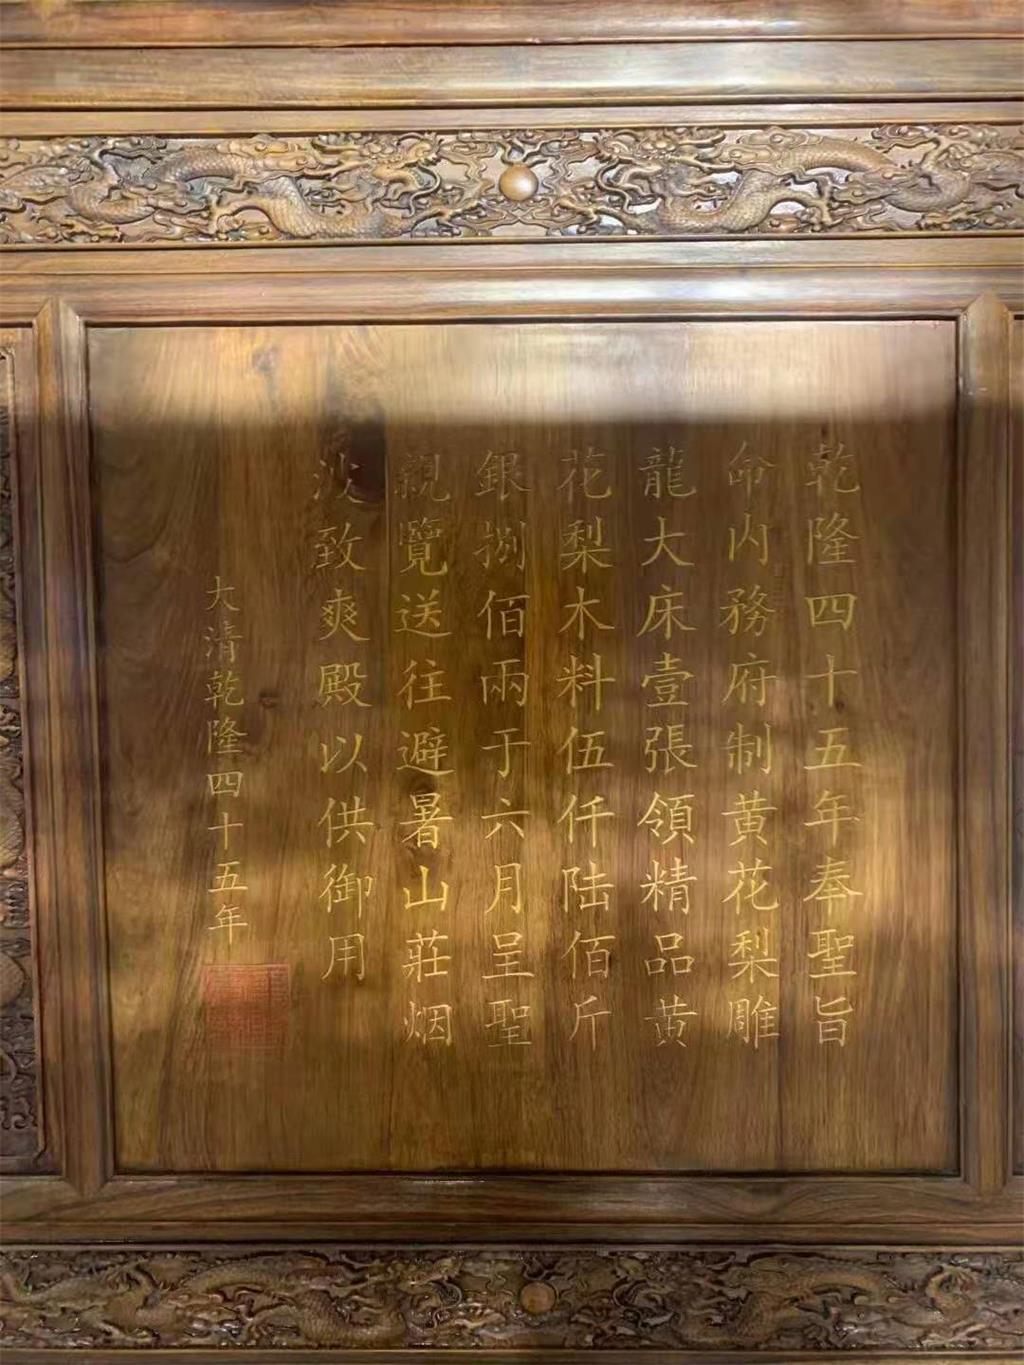 乾隆四十五年奉聖旨
命内務府制黄花梨雕
龍大床壹張領精品黄
花梨木料伍仟陆佰斤
銀捌佰兩于六月呈聖
親覽送往避暑山莊烟
淡致爽殿以供御用
大清乾隆四十五年